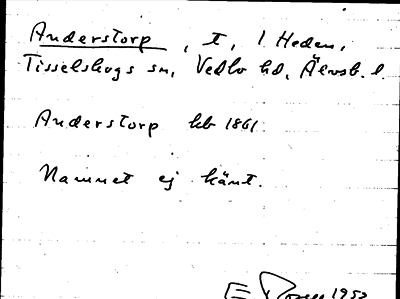 Anderstorp, t, 1 Heden,
Tisselskogs sn, Vedbo hd, Älvsb. l.
Anderstorp hb 1861
Namnet ej känt.
E Rosell 1952